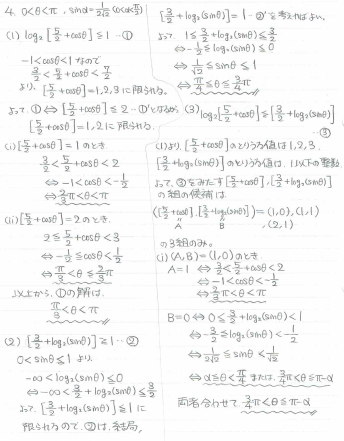 4. 0<θ<π, sinα=1/(2√2) (0<α<π/2)
(1) log₂[5/2+cosθ]≦1 …①
-1<cosθ<1 なので
3/2<5/2+cosθ<7/2
より, [5/2+cosθ]=1,2,3 に限られる.
よって ①⇔[5/2+cosθ]≦2 …①'となるから
[5/2+cosθ]=1,2 に限られる.
(i) [5/2+cosθ]=1のとき
3/2<5/2+cosθ<2
⇔ -1<cosθ<-1/2
⇔ 2/3π<θ<π
(ii) [5/2+cosθ]=2のとき,
2≦5/2+cosθ<3
⇔ -1/2≦cosθ<1/2
⇔ π/3<θ≦2/3π
以上から, ①の解は.
π/3<θ<π
(2) [3/2+log₂(sinθ)]≧1 …②
0<sinθ≦1 より.
-∞<log₂(sinθ)≦0
⇔ -∞<3/2+log₂(sinθ)≦3/2
よって. [3/2+log₂(sinθ)]≦1 に
限られるので. ②は結局,
[3/2+log₂(sinθ)]=1 …②' を考えればよい.
よって. 1≦3/2+log₂(sinθ)≦3/2
⇔ -1/2≦log₂(sinθ)≦0
⇔ 1/√2≦sinθ≦1
⇔ π/4≦θ≦3/4π
(3) log₂[5/2+cosθ]≦[3/2+log₂(sinθ)]
…③
(1)より, [5/2+cosθ]のとりうる値は1,2,3.
[3/2+log₂(sinθ)]のとりうる値は. 1以下の整数.
よって, ③をみたす[5/2+cosθ],[3/2+log₂(sinθ)]
の組の候補は.
([5/2+cosθ],[3/2+log₂(sinθ)])=(1,0),(1,1)
A B ,(2,1)
の3組のみ。
(i) (A,B)=(1,0)のとき.
A=1 ⇔ 3/2<5/2+cosθ<2
⇔ -1<cosθ<-1/2
⇔ 2/3π<θ<π
B=0 ⇔ 0≦3/2+log₂(sinθ)<1
⇔ -3/2≦log₂(sinθ)<-1/2
⇔ 1/(2√2)≦sinθ<1/√2
⇔ α≦θ<π/4 または. 3/4π<θ≦π-α
両者合わせて. 3/4π<θ≦π-α.